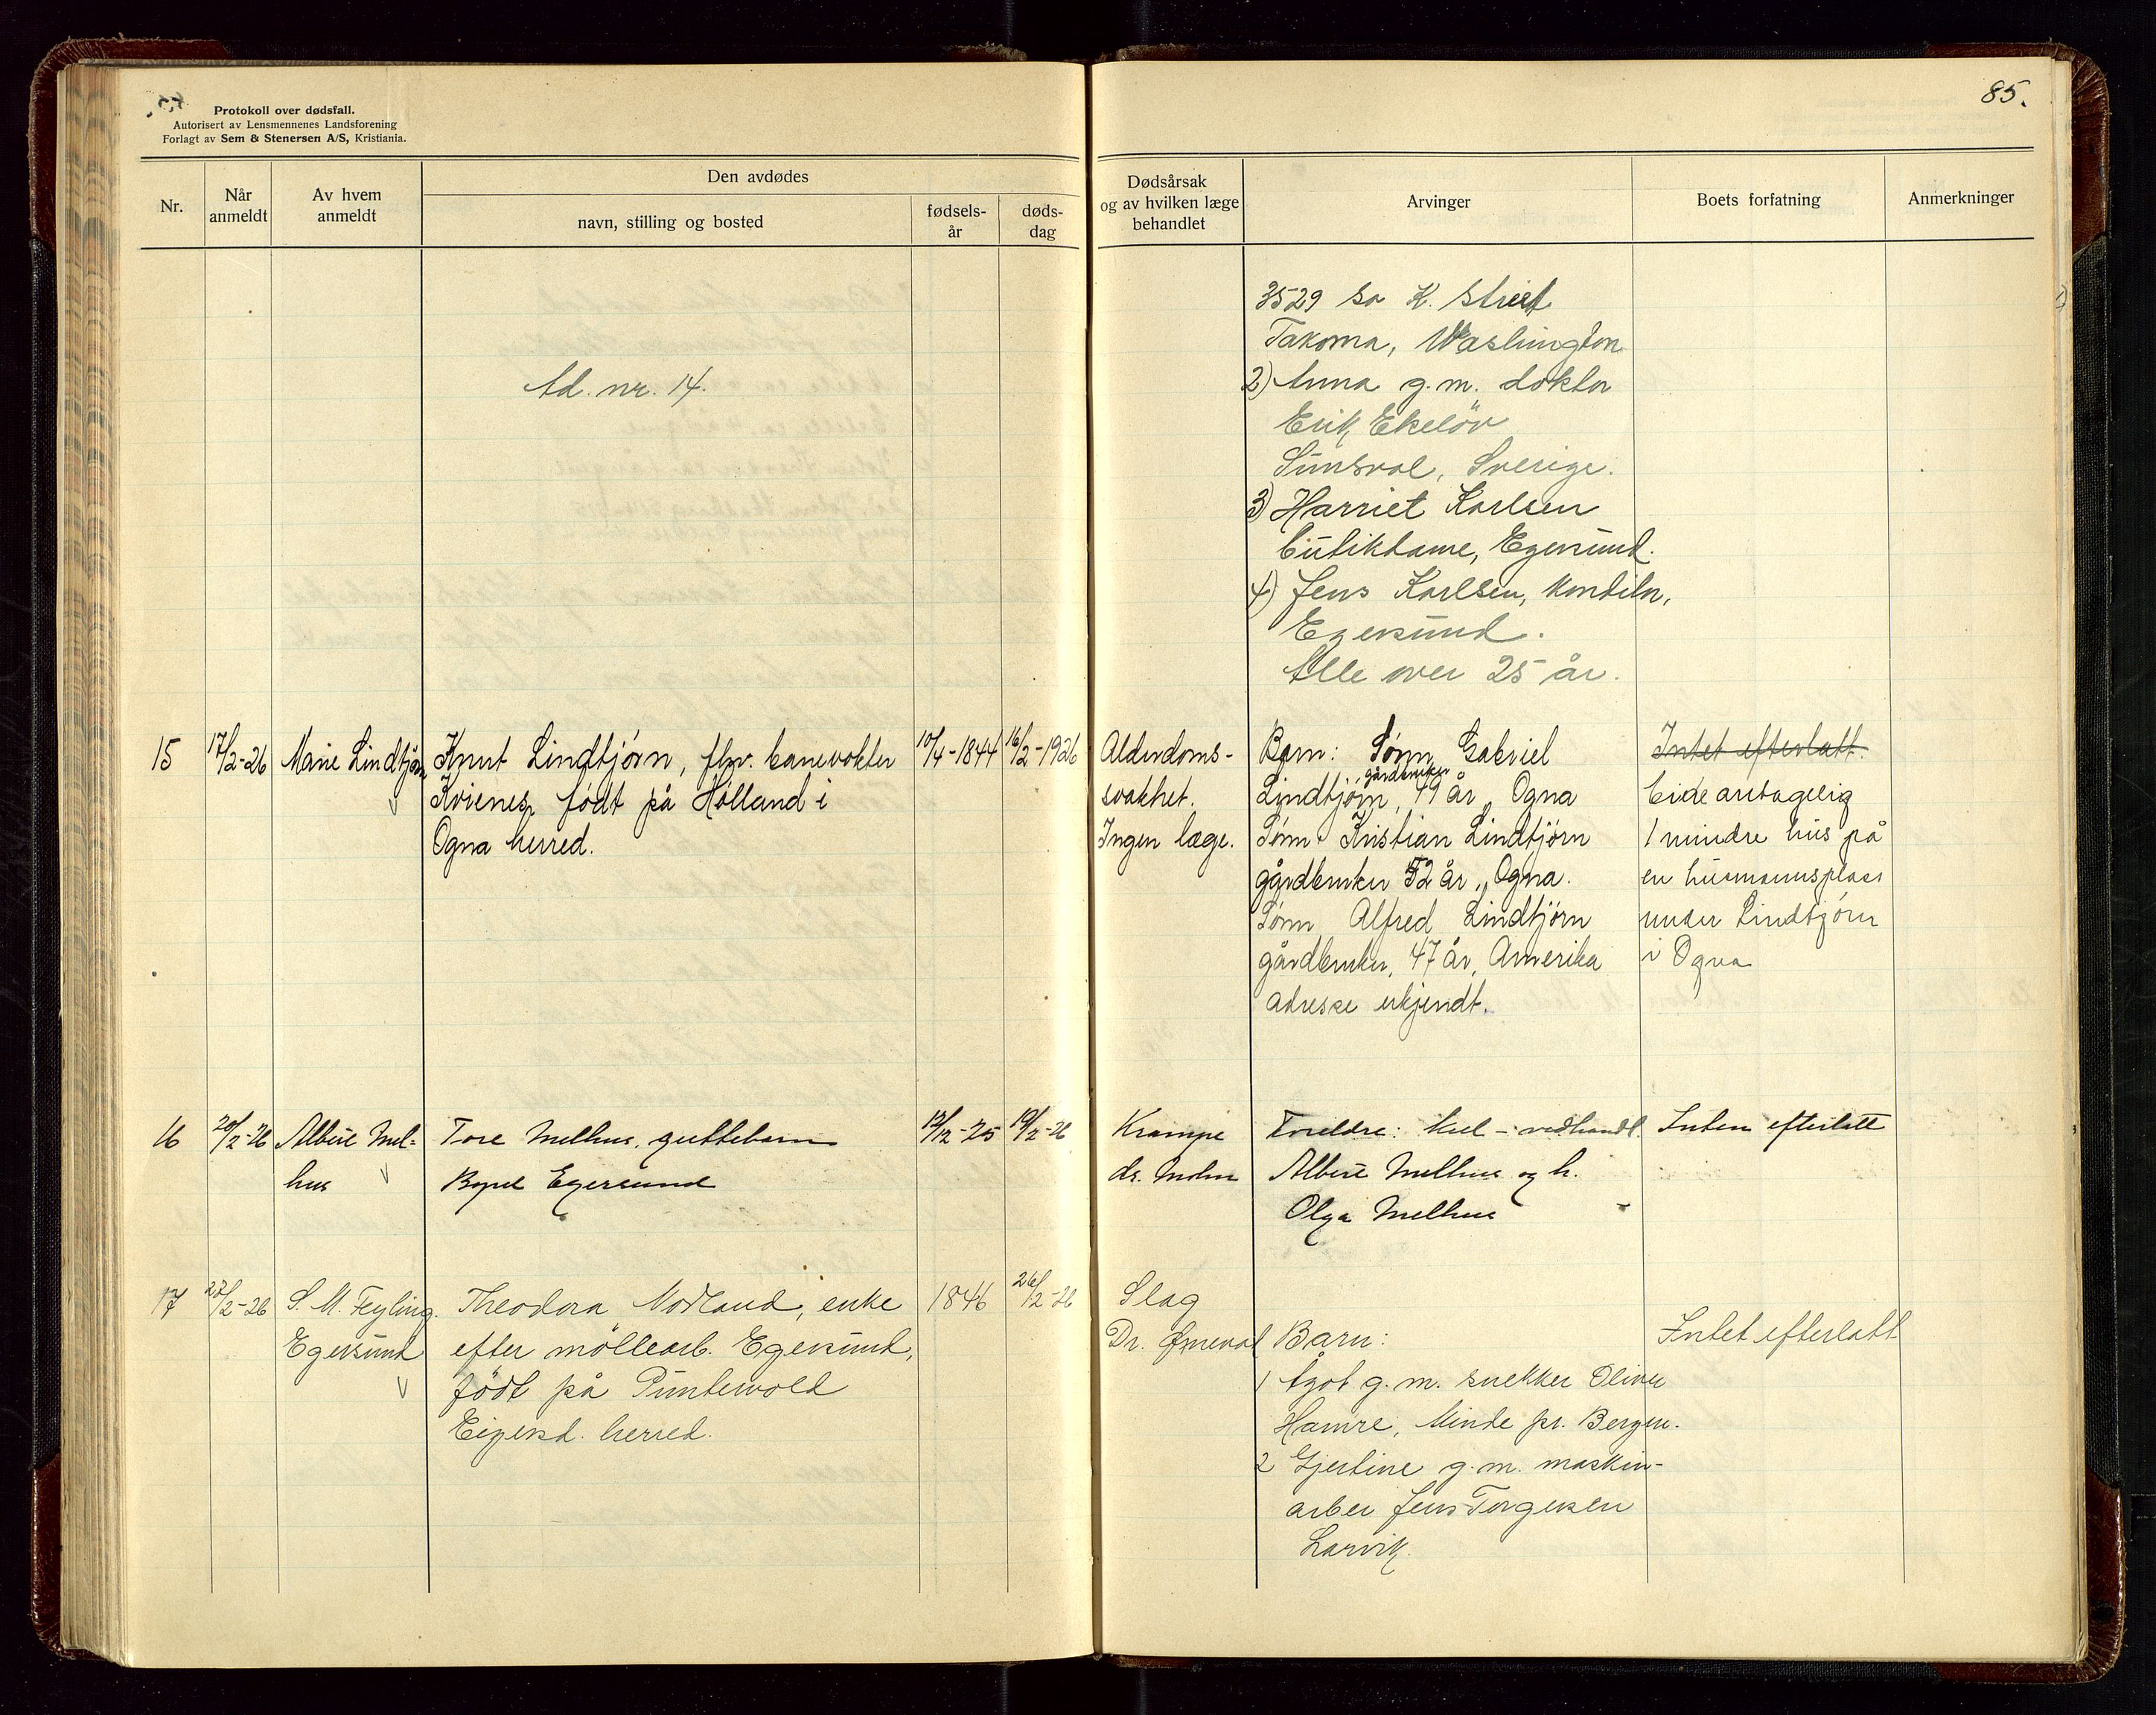 85.
Protokoll over dødsfall.
Autorisert av Lensmennenes Landsforening
Forlagt av Sem & Stenersen A/S, Kristiania.
Nr.
Når anmeldt
Av hvem anmeldt
Den avdødes
navn, stilling og bosted
fødsels-år
døds-dag
Dødsårsak og av hvilken læge behandlet
Arvinger
Boets forfatning
Anmerkninger
Ad. nr. 14.
3529 So K. Street
Takoma, Washington
2) Anna g.m. doktor
Erik Ekelöv
Sunsval, Sverige.
3) Harriet Karlsen
butikdame, Egersund.
4) Jens Karlsen, konditor,
Egersund.
Alle over 25 år.
15
17/2-26
Marie Lindtjørn
Knut Lindtjørn, fhv. banevokter
født på Hålland i
Ogna herred.
10/4-1844
16/2-1926
Alderdoms-
svakhet.
Ingen læge.
Barn: Sønn Gabriel
gårdbruker
Lindtjørn, 49 år, Ogna
Sønn Kristian Lindtjørn
gårdbruker 52 år, Ogna.
Sønn Alfred Lindtjørn
gårdbruker, 47 år, Amerika
adresse ukjendt.
Intet efterlatt.
1 mindre hus på
en husmannsplass
under Lindtjørn
i Ogna
16
20/2-26
Albert Mel-
hus
Tore Melhus, guttebarn
Egersund
12/12-25
19/2-26
Krampe
dr.
Foreldre: kul- vedhandl.
Albert Melhus og h.
Olga Melhus
Inten efterlatt
17
27/2-26
S. M. Feyling.
Egersund
Theodora Nodland, enke
efter møllearb. Egersund,
født på Puntervold
Eigersd. herred.
1846
26/2-26
Slag
Dr.
Barn:
1 Ågot g.m. snekker Oliver
Hamre, Minde pr. Bergen.
2 Gjertine g.m. maskin-
arber Jens Torgersen
Larvik.
Intet efterlatt